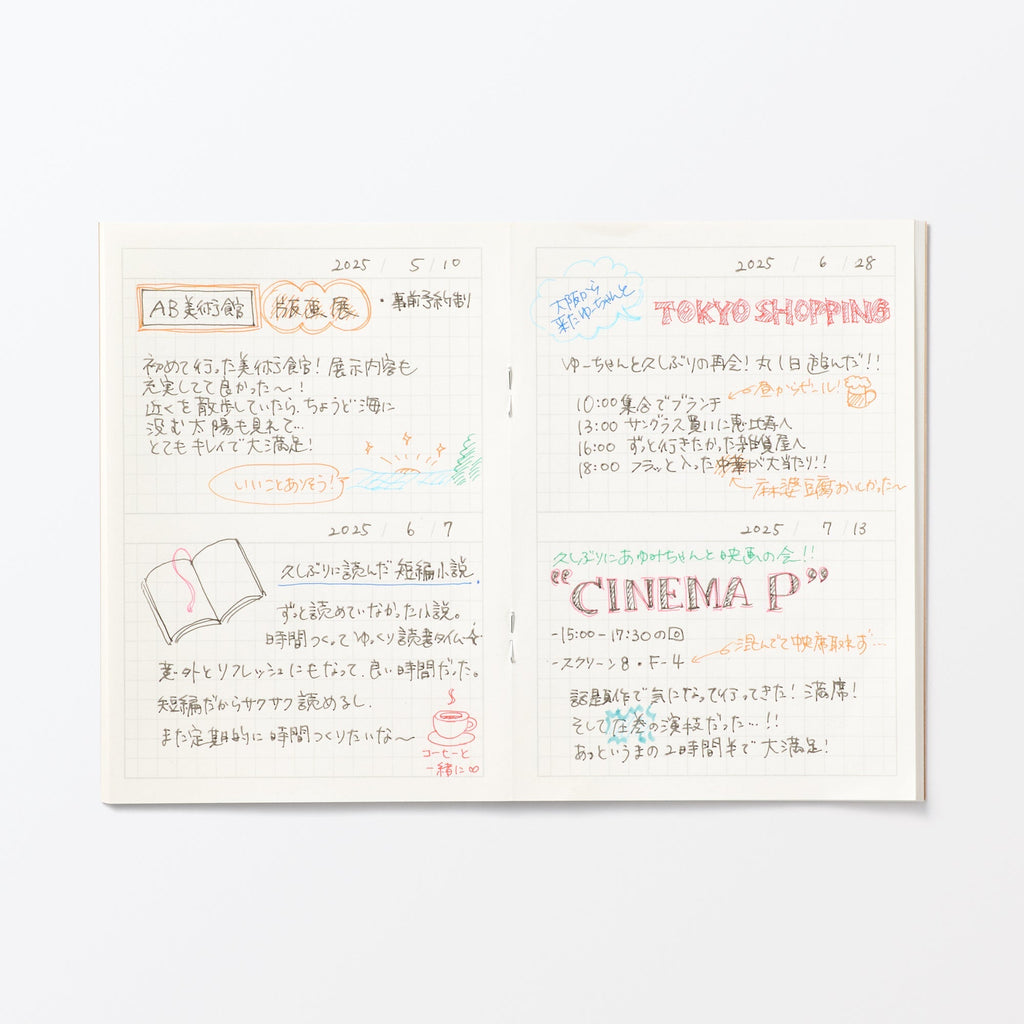 2025 / 5 / 10
AB美術館 版画展 ・事前予約制
初めて行った美術館！展示内容も
充実してて良かった〜！
近くを散歩していたら、ちょうど海に
沈む太陽も見れて…
とてもキレイで大満足！
いいことありそう！
2025 / 6 / 7
久しぶりに読んだ短編小説。
ずっと読めていなかった小説。
時間つくってゆっくり読書タイム
意外とリフレッシュにもなって、良い時間だった。
短編だからサクサク読めるし、
また定期的に時間つくりたいな〜
コーヒーと
一緒に∞
2025 / 6 / 28
大阪から
来たゆーちゃんと
TOKYO SHOPPING
ゆーちゃんと久しぶりの再会！丸1日遊んだ！！
昼からビール！
10:00 集合でブランチ
13:00 サングラス買いに恵比寿へ
16:00 ずっと行きたかった雑貨屋へ
18:00 フラッと入った中華が大当たり！！
麻婆豆腐おいしかった〜
2025 / 7 / 13
久しぶりにあゆみちゃんと映画の会！！
“CINEMA P”
-15:00-17:30の回
-スクリーン8・F-4
混んでて中央席取れず…
話題作で気になって行ってきた！満席！
そして圧巻の演技だった…！！
あっというまの2時間半で大満足！